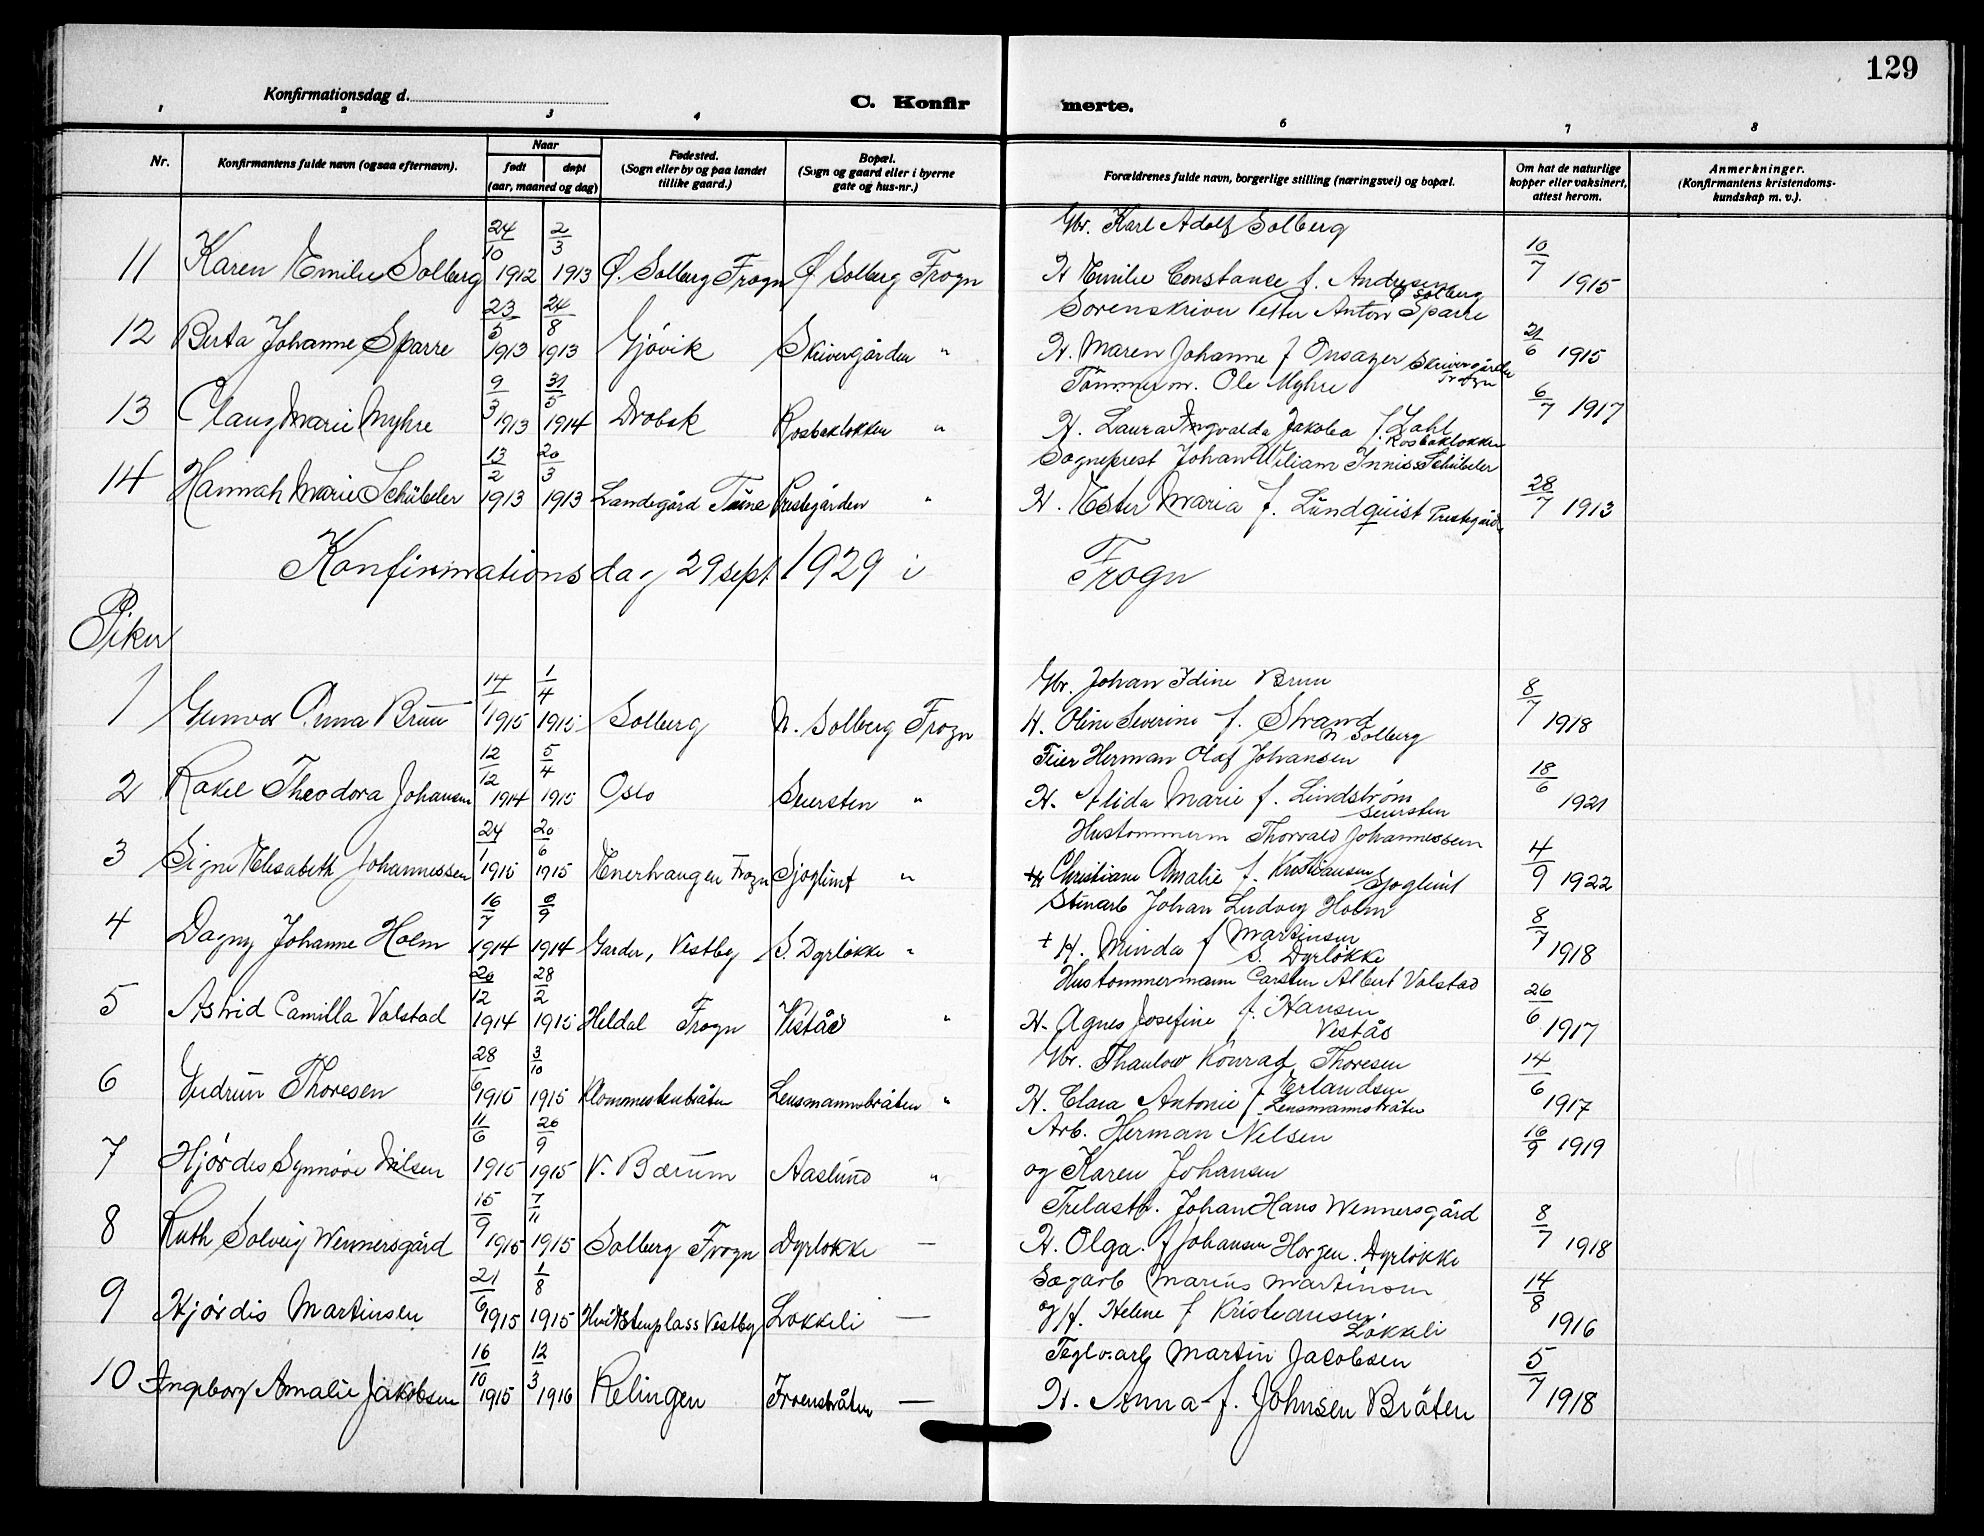 129
Konfirmationsdag d.
C. Konfirmerte.
1 2 3 4 6 7 8
Nr.
Konfirmantens fulde navn (ogsaa efternavn).
Naar
født døpt
(aar, maaned og dag)
Fødested.
(Sogn eller by og paa landet
tillike gaard.)
Bopæl.
(Sogn og gaard eller i byerne
gate og hus-nr.)
Forældrenes fulde navn, borgerlige stilling (næringsvei) og bopæl.
Om hat de naturlige
kopper eller vaksinert,
attest herom.
Anmerkninger.
(Konfirmantens kristendoms-
kundskap m. v.).
Gbr. Karl Adolf Solberg
11 Karen Emilie Solberg 24/10 1912 2/3 1913 Ø. Solberg Frogn Ø Solberg Frogn H Emilie Constance f. Andersen Ø Solberg 10/7 1915
Sorenskriver Petter Anton Sparre
12 Berta Johanne Sparre 23/5 1913 24/8 1913 Gjøvik Skrivergården " H. Maren Johanne f Onsager Skrivergården Frogn 21/6 1915
Tømmerm. Ole Myhre
13 Claug Marie Myhre 9/3 1913 31/5 1914 Drøbak Rosbakløkken " H. Laura Ingvalda Jakoba f. Lahl Rosbakløkken 6/7 1917
Sogneprest Johan Wiliam Inniss Schübeler
14 Hannah Marie Schübeler 13/2 1913 20/3 1913 Landegård Tüne Prestegården " H. Ester Maria f. Lündqüist Prestegård 28/7 1913
Konfirmationsdag 29 sept 1929 i Frogn
Piker
Gbr. Johan Idine Brun
1 Gunvor Anna Brun 14/1 1915 1/4 1915 Solberg N. Solberg Frogn H. Oline Severine f. Strand N Solberg 8/7 1918
Feier Herman Olaf Johansen
2 Rakel Theodora Johansen 12/12 1914 5/4 1915 Oslo Seiersten " H. Alida Marie f. Lindstrøm Seiersten 18/6 1921
Hustømmerm Thorvald Johannessen
3 Signe Elisabeth Johannessen 24/1 1915 20/6 1915 Enerhaugen Frogn Sjøglimt " + H Christiane Amalie f. Kristiansen Sjøglimt 4/9 1922
Stenarb Johan Ludvig Holm
4 Dagny Johanne Holm 16/7 1914 6/9 1914 Garder, Vestby S. Dyrløkke " + H. Minda f Martinsen S. Dyrløkke 8/7 1918
Hustømmermann Carsten Albert Valstad
5 Astrid Camilla Valstad 20/12 1914 28/2 1915 Heldal Frogn Veståo " H. Agnes Josefine f. Hansen Veståo 26/6 1917
Gbr. Thaulow Konrad Thoresen
6 Gudrun Thoresen 28/6 1915 3/10 1915 Klommestenbråten Lensmannsbråten " H. Clara Antonie f Erlandsen Lensmannsbråten 14/6 1917
Arb. Herman Nelsen
7 Hjørdis Synnøve Nilsen 11/6 1915 26/9 1915 V. Bærum Aaslund " og Karen Johansen 16/9 1919
Trelasth. Johan Hans Wennersgård
8 Ruth Solveig Wennersgård 15/9 1915 7/11 1915 Solberg Frogn Dyrløkke — H. Olga. f Johansen Horgen. Dyrløkke 8/7 1918
Sagarb Marius Martinsen
9 Hjørdis Martinsen 21/6 1915 1/8 1915 Hvitstenplass Vestby Løkkeli — og H. Helene f Kristiansen. Løkkeli 14/8 1916
Teglv.arb Martin Jacobsen
10 Ingeborg Amalie Jakobsen 16/10 1915 12/3 1916 Kelingen Froensbråten — H. Anna f. Johnsen Bråten 5/7 1918